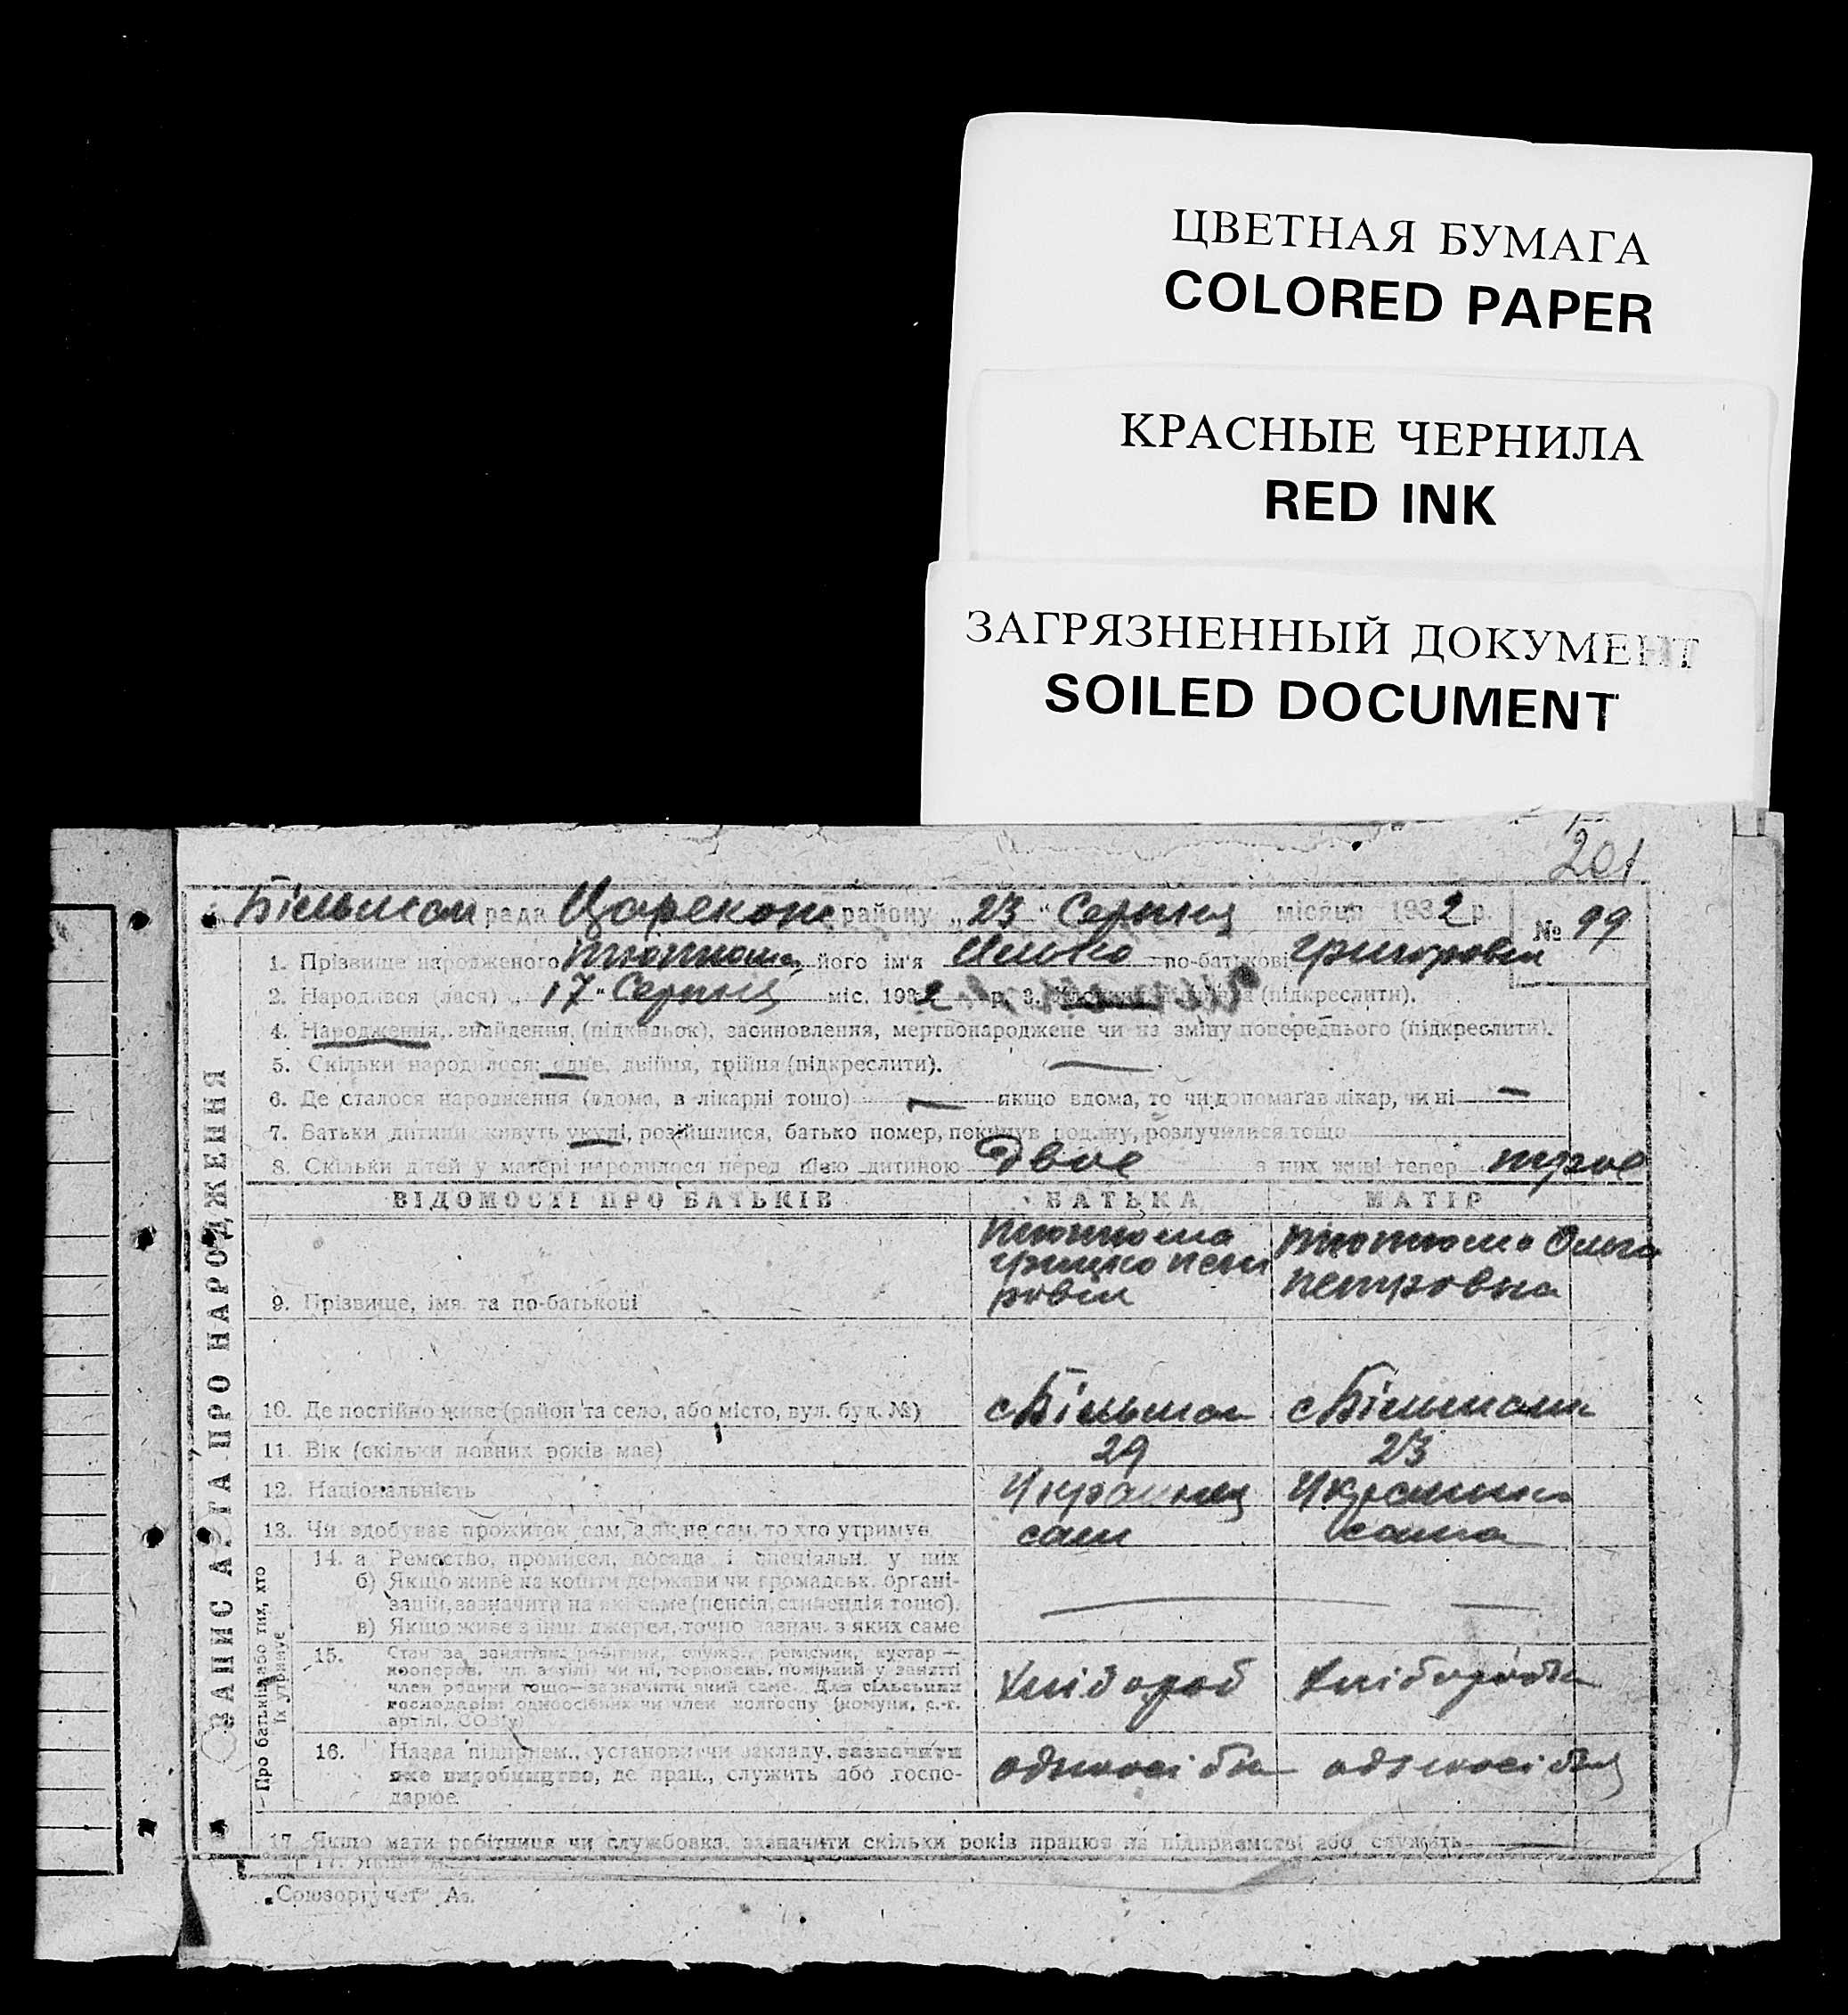 ЦВЕТНАЯ БУМАГА
COLORED PAPER
КРАСНЫЕ ЧЕРНИЛА
RED INK
ЗАГРЯЗНЕННЫЙ ДОКУМЕНТ
SOILED DOCUMENT
201
рада району „23“ Серпня місяця 1932 р.
№ 99
1. Прізвище народженого його ім'я по-батькові
2. Народився (лася) „17“ Серпня міс. 1932 р. 3. (підкреслити).
4. Народження, знайдення, (підкидьок), засиновлення, мертвонароджене чи на зміну попереднього (підкреслити).
5. Скільки народилося: одне, двійня, трійня (підкреслити).
6. Де сталося народження (вдома, в лікарні тощо) — якщо вдома, то чи допомагав лікар, чи ні —
7. Батьки дитини живуть укупі, розійшлися, батько помер, покинув родину, розлучилися тощо
8. Скільки дітей у матері народилося перед цією дитиною Двое з них живі тепер
ЗАПИС АКТА ПРО НАРОДЖЕННЯ
ВІДОМОСТІ ПРО БАТЬКІВ БАТЬКА МАТІР
9. Прізвище, імя та по-батькові Петровна
10. Де постійно живе (район та село, або місто, вул. буд. №)
11. Вік (скільки повних років має) 29 23
12. Національність
13. Чи здобуває прожиток сам, а як не сам, то хто утримує сам сама
Про батьків або тих, хто їх утримує
14. а Ремество, промисел, посада і спеціяльн. у них
б) Якщо живе на кошти держави чи громадськ. органі-
зацій, зазначити на які саме (пенсія, стипендія тощо).
в) Якщо живе з інш. джерел, точно зазнач. з яких саме
15. Стан за заняттям: робітник, службо., ремісник, кустар —
член родини тощо—зазначити який саме. Для сільських
господарів: одноосібник чи член колгоспу (комуни, с.-г.
артілі, СОЗ'у)
Хлібороб
16. Назва підприєм., установи чи закладу, зазначити
яке виробництво, де прац., служить або госпо-
дарює
17. Якщо мати робітниця чи службовка, зазначити скільки років працює на підприємстві або служить
„Союзоргучет“